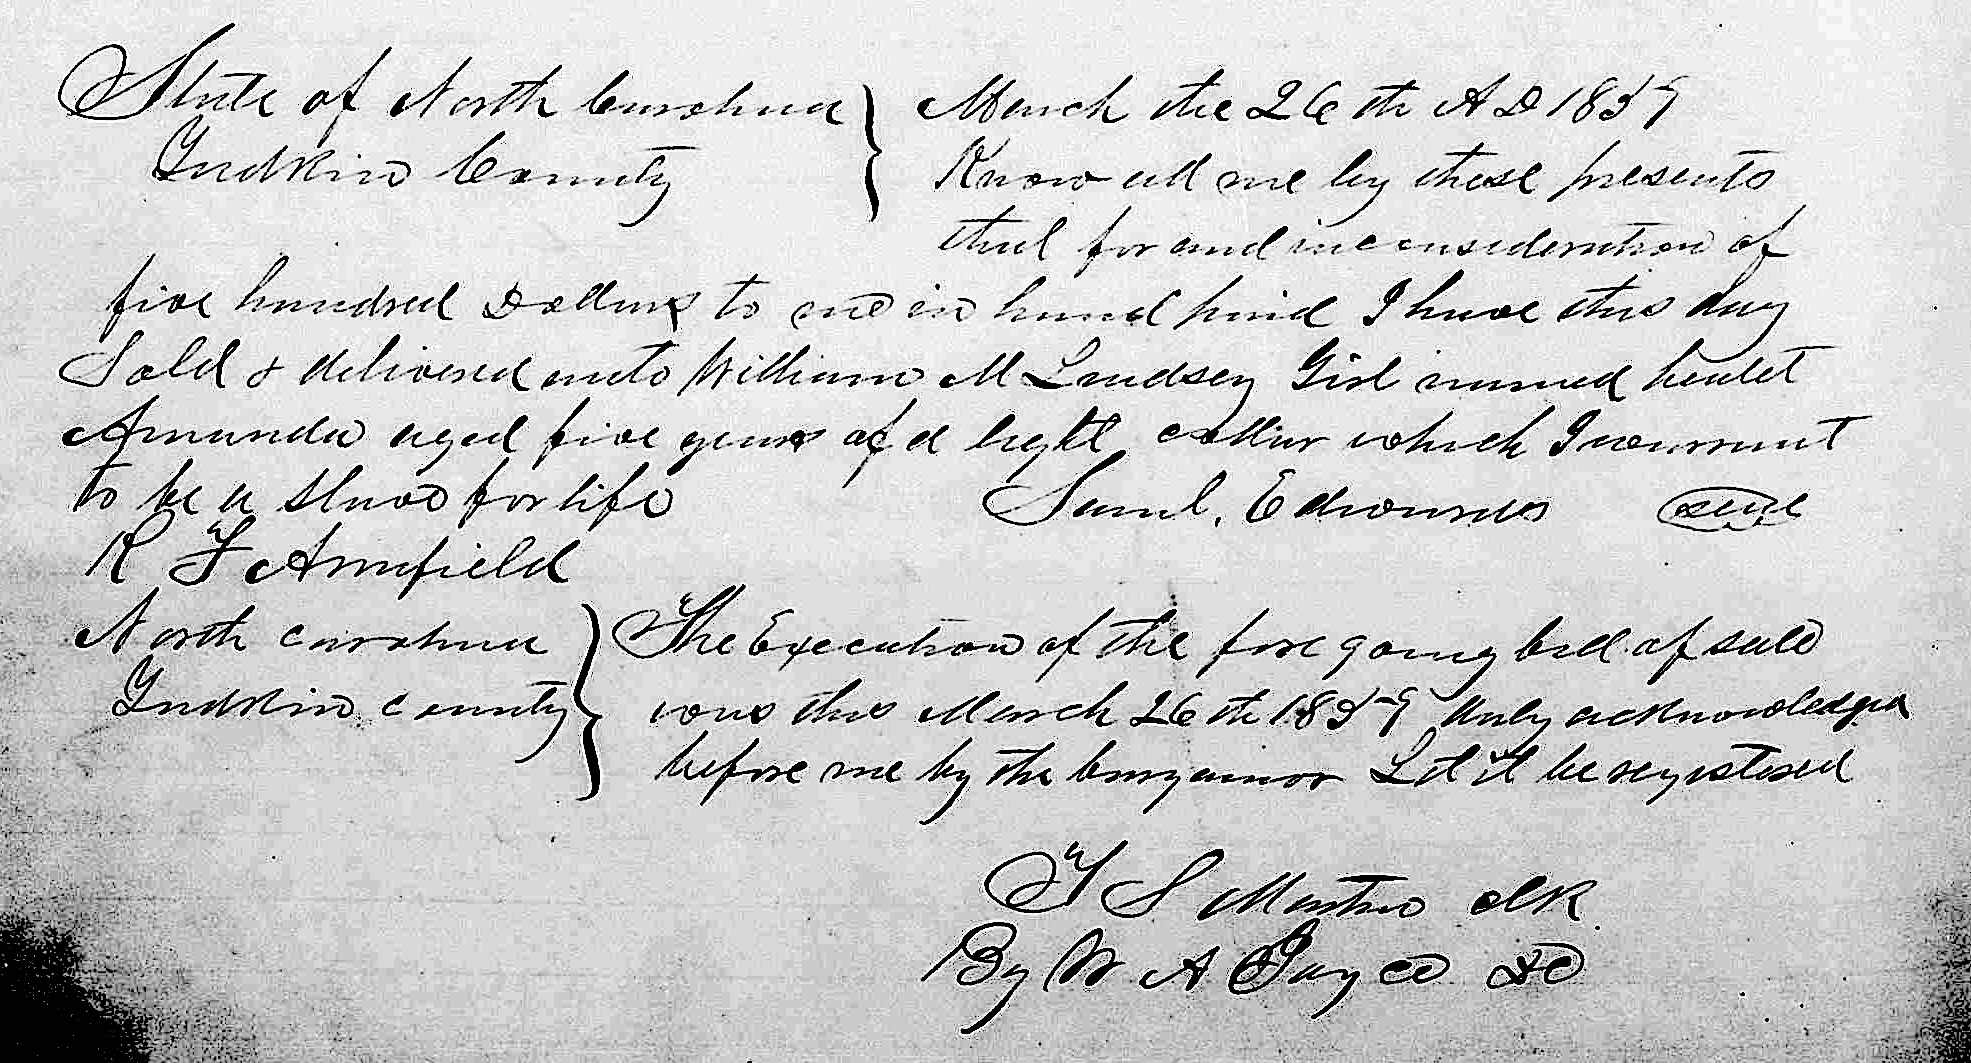 State of North Carolina } March the 26th A D 1859
Yadkin County
Know all me by these presents
that for and in consideration of
five hundred Dollars to me in hand paid I have this day
Sold & delivered unto William M Lindsey Girl named
Amanda aged five years of a light coller which I warrant
to be a Slave for life Saml. Edwards seal
R F Armfield
North carolina } The Execution of the fore going bill of sale
Yadkin county was this March 26th 1859 duly acknowledged
before me by the bargainor Let it be registered
T S Martin clk
By W A Joyce DC